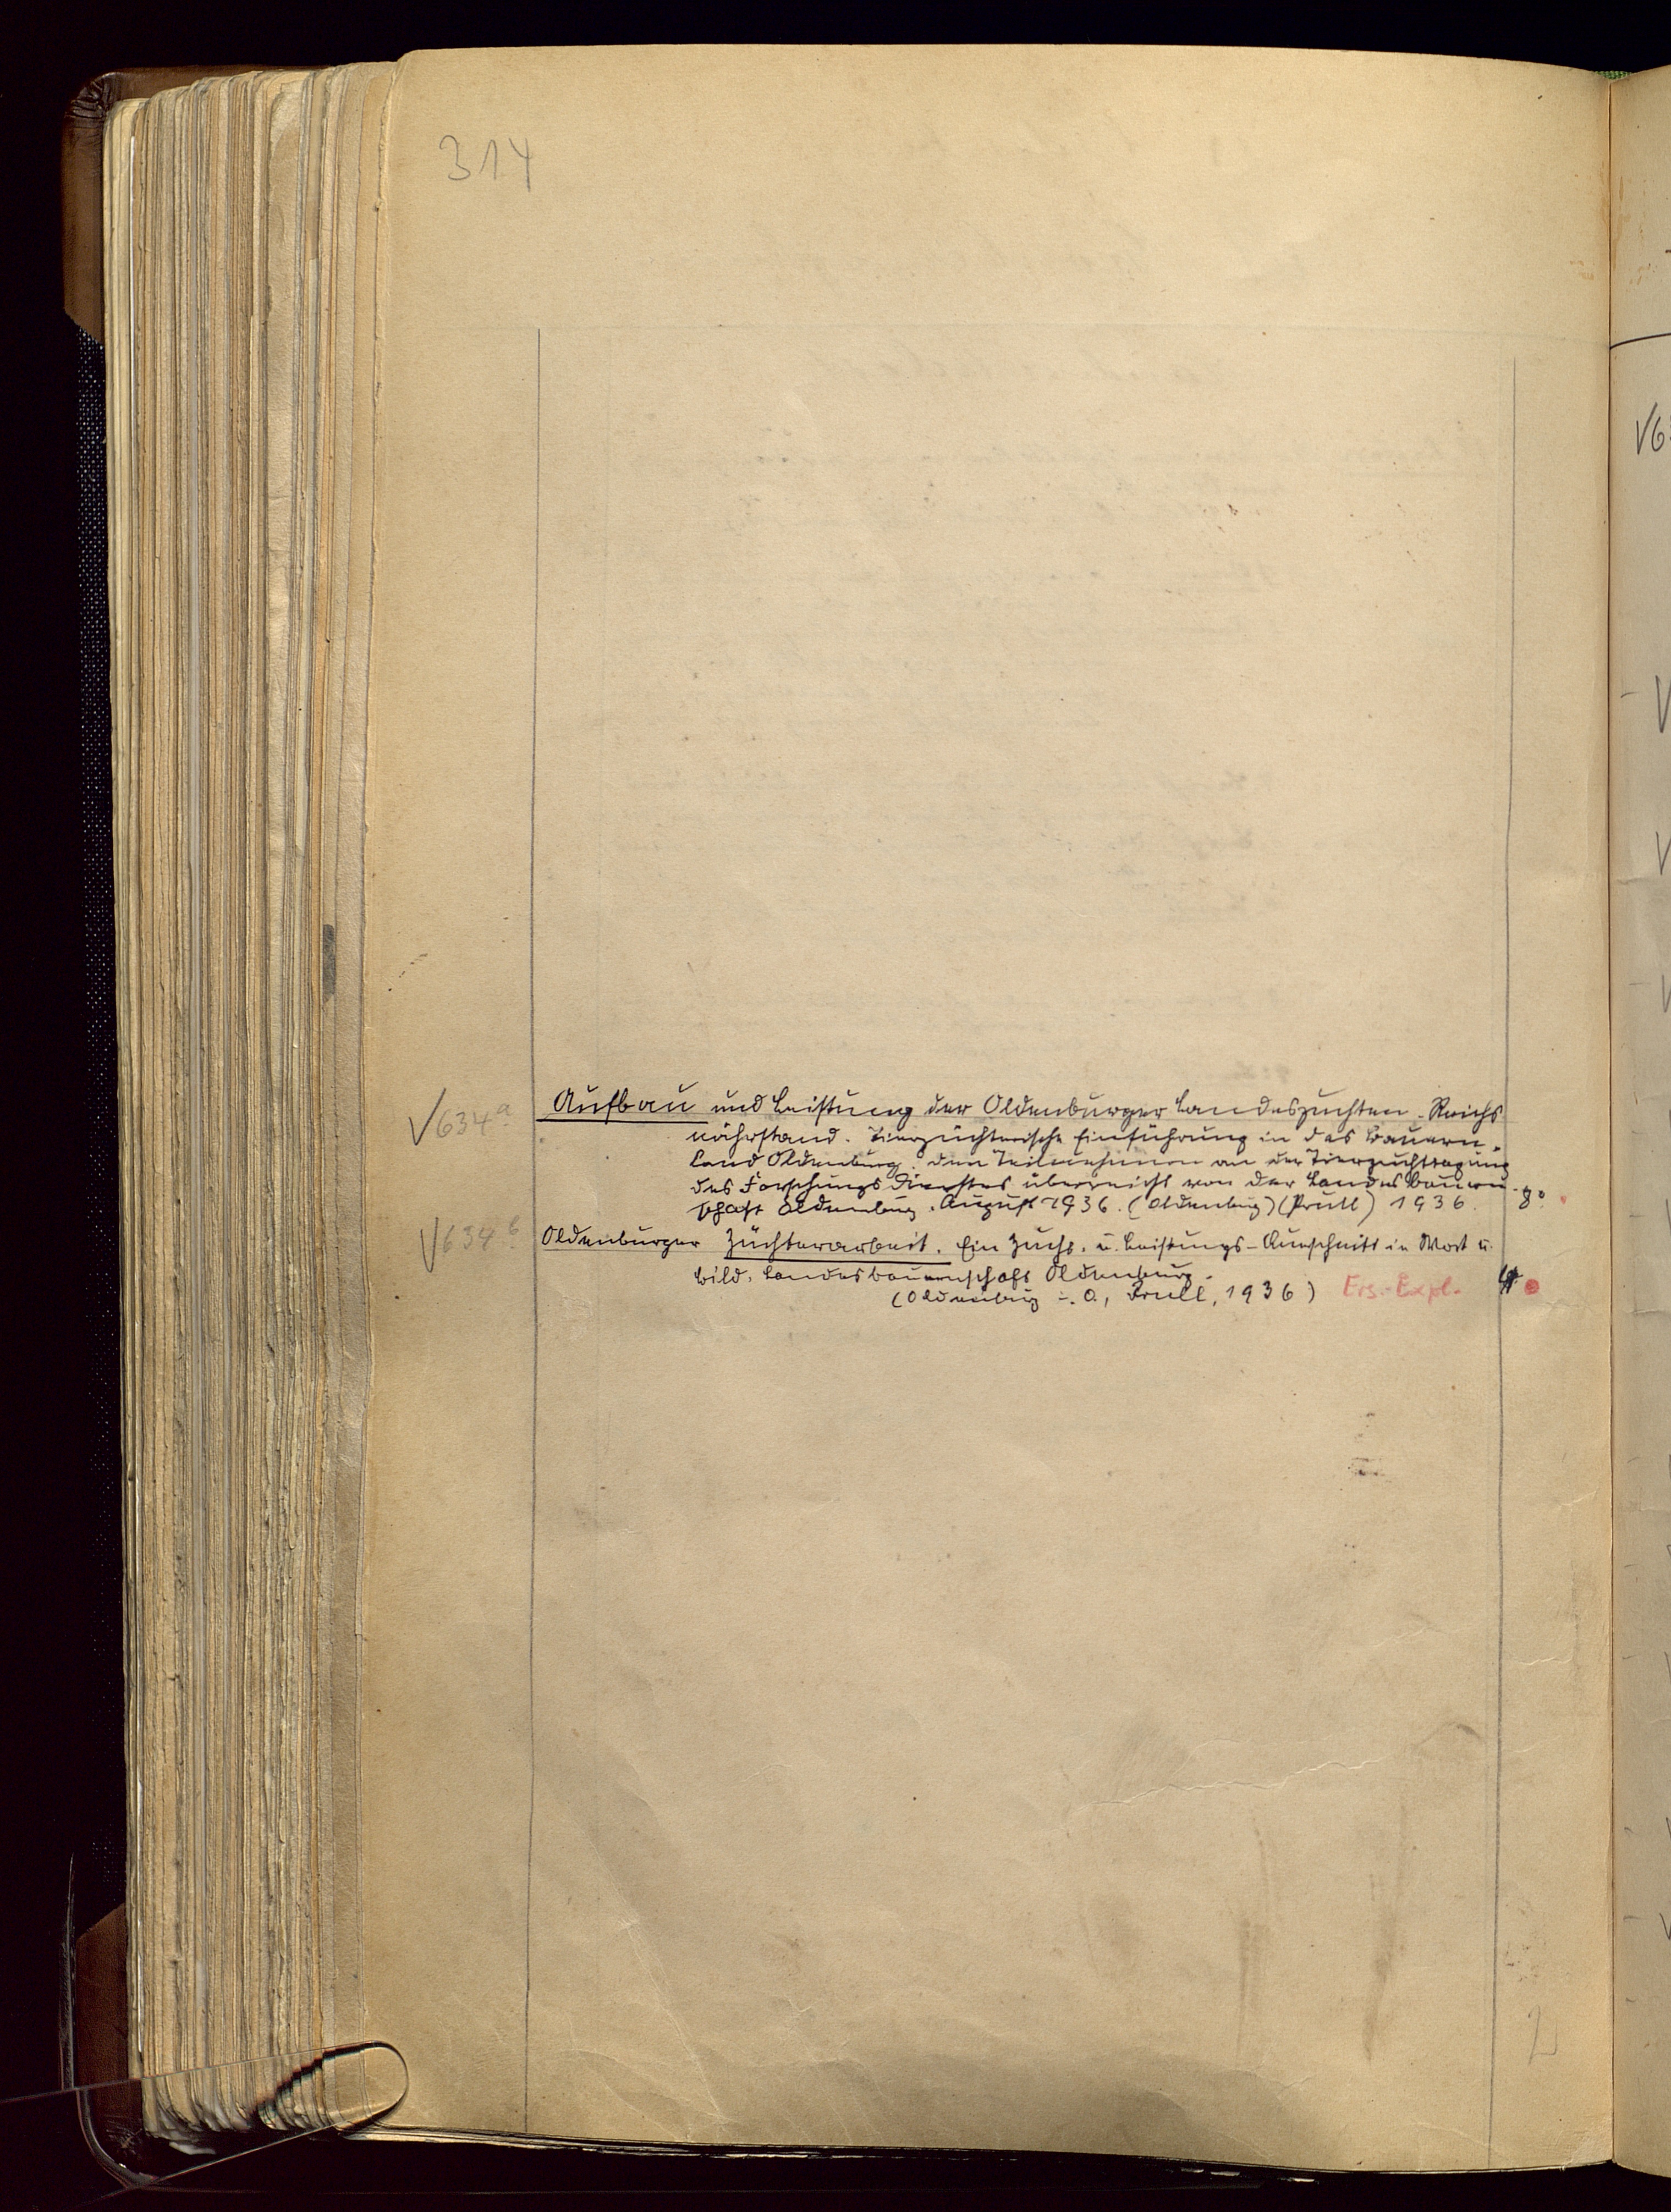 314
V634a Aufbau und Leistung der Oldenburger Landeszuchten. Reichs
nährstand. Tierzüchterische Einführung in das Bauern-
land Oldenburg. Den Teilnehmern an der Tierzuchttagung
des Forschungsdienstes überreicht von der Landesbauern-
schaft Oldenburg. August 1936. (Oldenburg) (Prull) 1936. 8°.
V634b Oldenburger Züchterarbeit. Ein Zucht- u. Leistungs-Ausschnitt in Wort u.
Bild. Landesbauernschaft Oldenburg.
(Oldenburg i. O., Prull, 1936) Ers.-Expl. 4°
V6